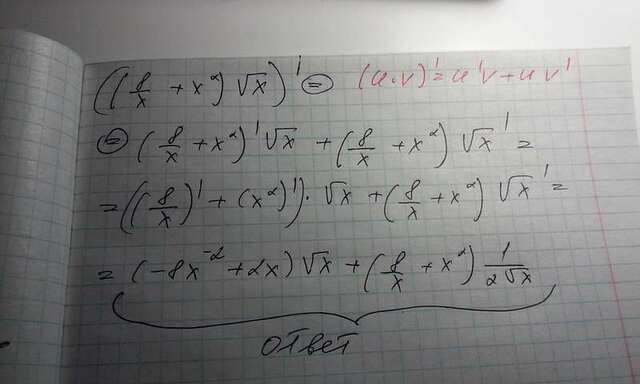 ((8/x + x²) √x)' = (u·v)' = u'v + uv'
= (8/x + x²)' √x + (8/x + x²) √x' =
= ((8/x)' + (x²)')· √x + (8/x + x²) √x' =
= (-8x⁻² + 2x) √x + (8/x + x²) 1/(2√x)
ответ